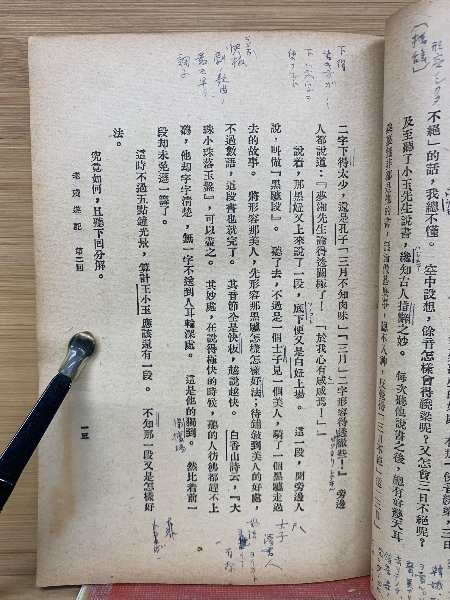 不絕』的話，我總不懂。空中設想，餘音怎樣會得繞梁呢？又怎會三日不絕呢？
及至聽了小玉先生說書，纔知古人措辭之妙。每次聽他說書之後，總有好幾天耳
二字下得太少，還是孔子『三月不知肉味』『三月』二字形容得透徹些！』旁邊
人都說道：『夢湘先生論得透闢極了！『於我心有戚戚焉。』』
說着，那黑妞又上來說了一段，底下便又是白妞上場。這一段，聞旁邊人
說，叫做『黑驢段』。聽了去，不過是一個士子見一個美人，騎了一個黑驢走過
去的故事。將形容那美人，先形容那黑驢怎樣怎樣好法；待鋪敘到美人的好處，
不過數語，這段書也就完了。其音節全是快板，越說越快。白香山詩云，『大
珠小珠落玉盤』，可以盡之。其妙處，在說得極快的時候，聽的人彷彿都趕不上
聽，他却字字清楚，無一字不送到人耳輪深處。這是他的獨到。然比着前一
段却未免遜一籌了。
這時不過五點鐘光景，算計王小玉應該還有一段。不知那一段又是怎樣好
法。
究竟如何，且聽下回分解。
老殘遊記　第二回
一三
下得
快板
調子
士子